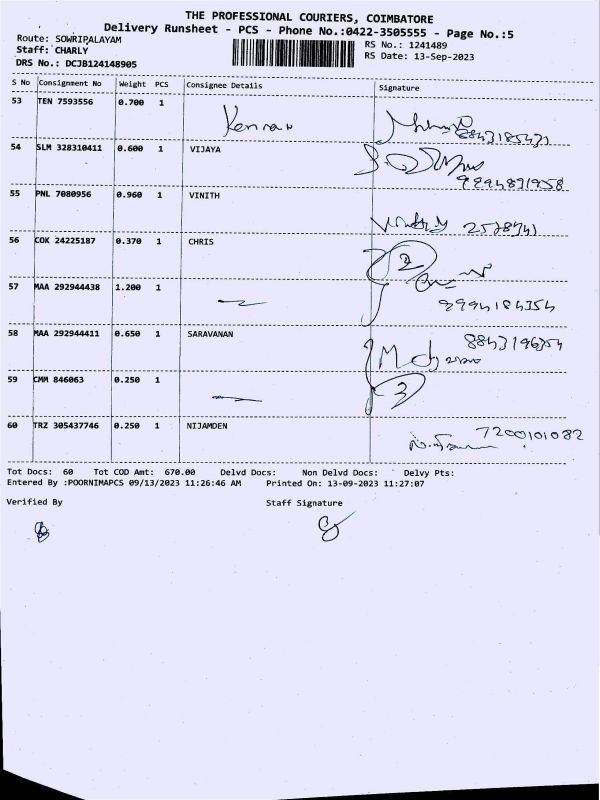 THE PROFESSIONAL COURIERS, COIMBATORE
Delivery Runsheet - PCS - Phone No.:0422-3505555 - Page No.:5
Route: SOWRIPALAYAM
RS No.: 1241489
Staff: CHARLY
RS Date: 13-Sep-2023
DRS No.: DCJB124148905
S No Consignment No Weight PCS Consignee Details Signature
53 TEN 7593556 0.700 1
8843185431
54 SLM 328310411 0.600 1 VIJAYA
9994891958
55 PNL 7080956 0.960 1 VINITH
56 COK 24225187 0.370 1 CHRIS
2
57 MAA 292944438 1.200 1
9994184354
58 MAA 292944411 0.650 1 SARAVANAN
59 CMM 846063 0.250 1
3
60 TRZ 305437746 0.250 1 NIJAMDEN
7200101082
Tot Docs: 60 Tot COD Amt: 670.00 Delvd Docs: Non Delvd Docs: Delvy Pts:
Entered By :POORNIMAPCS 09/13/2023 11:26:46 AM Printed On: 13-09-2023 11:27:07
Verified By Staff Signature